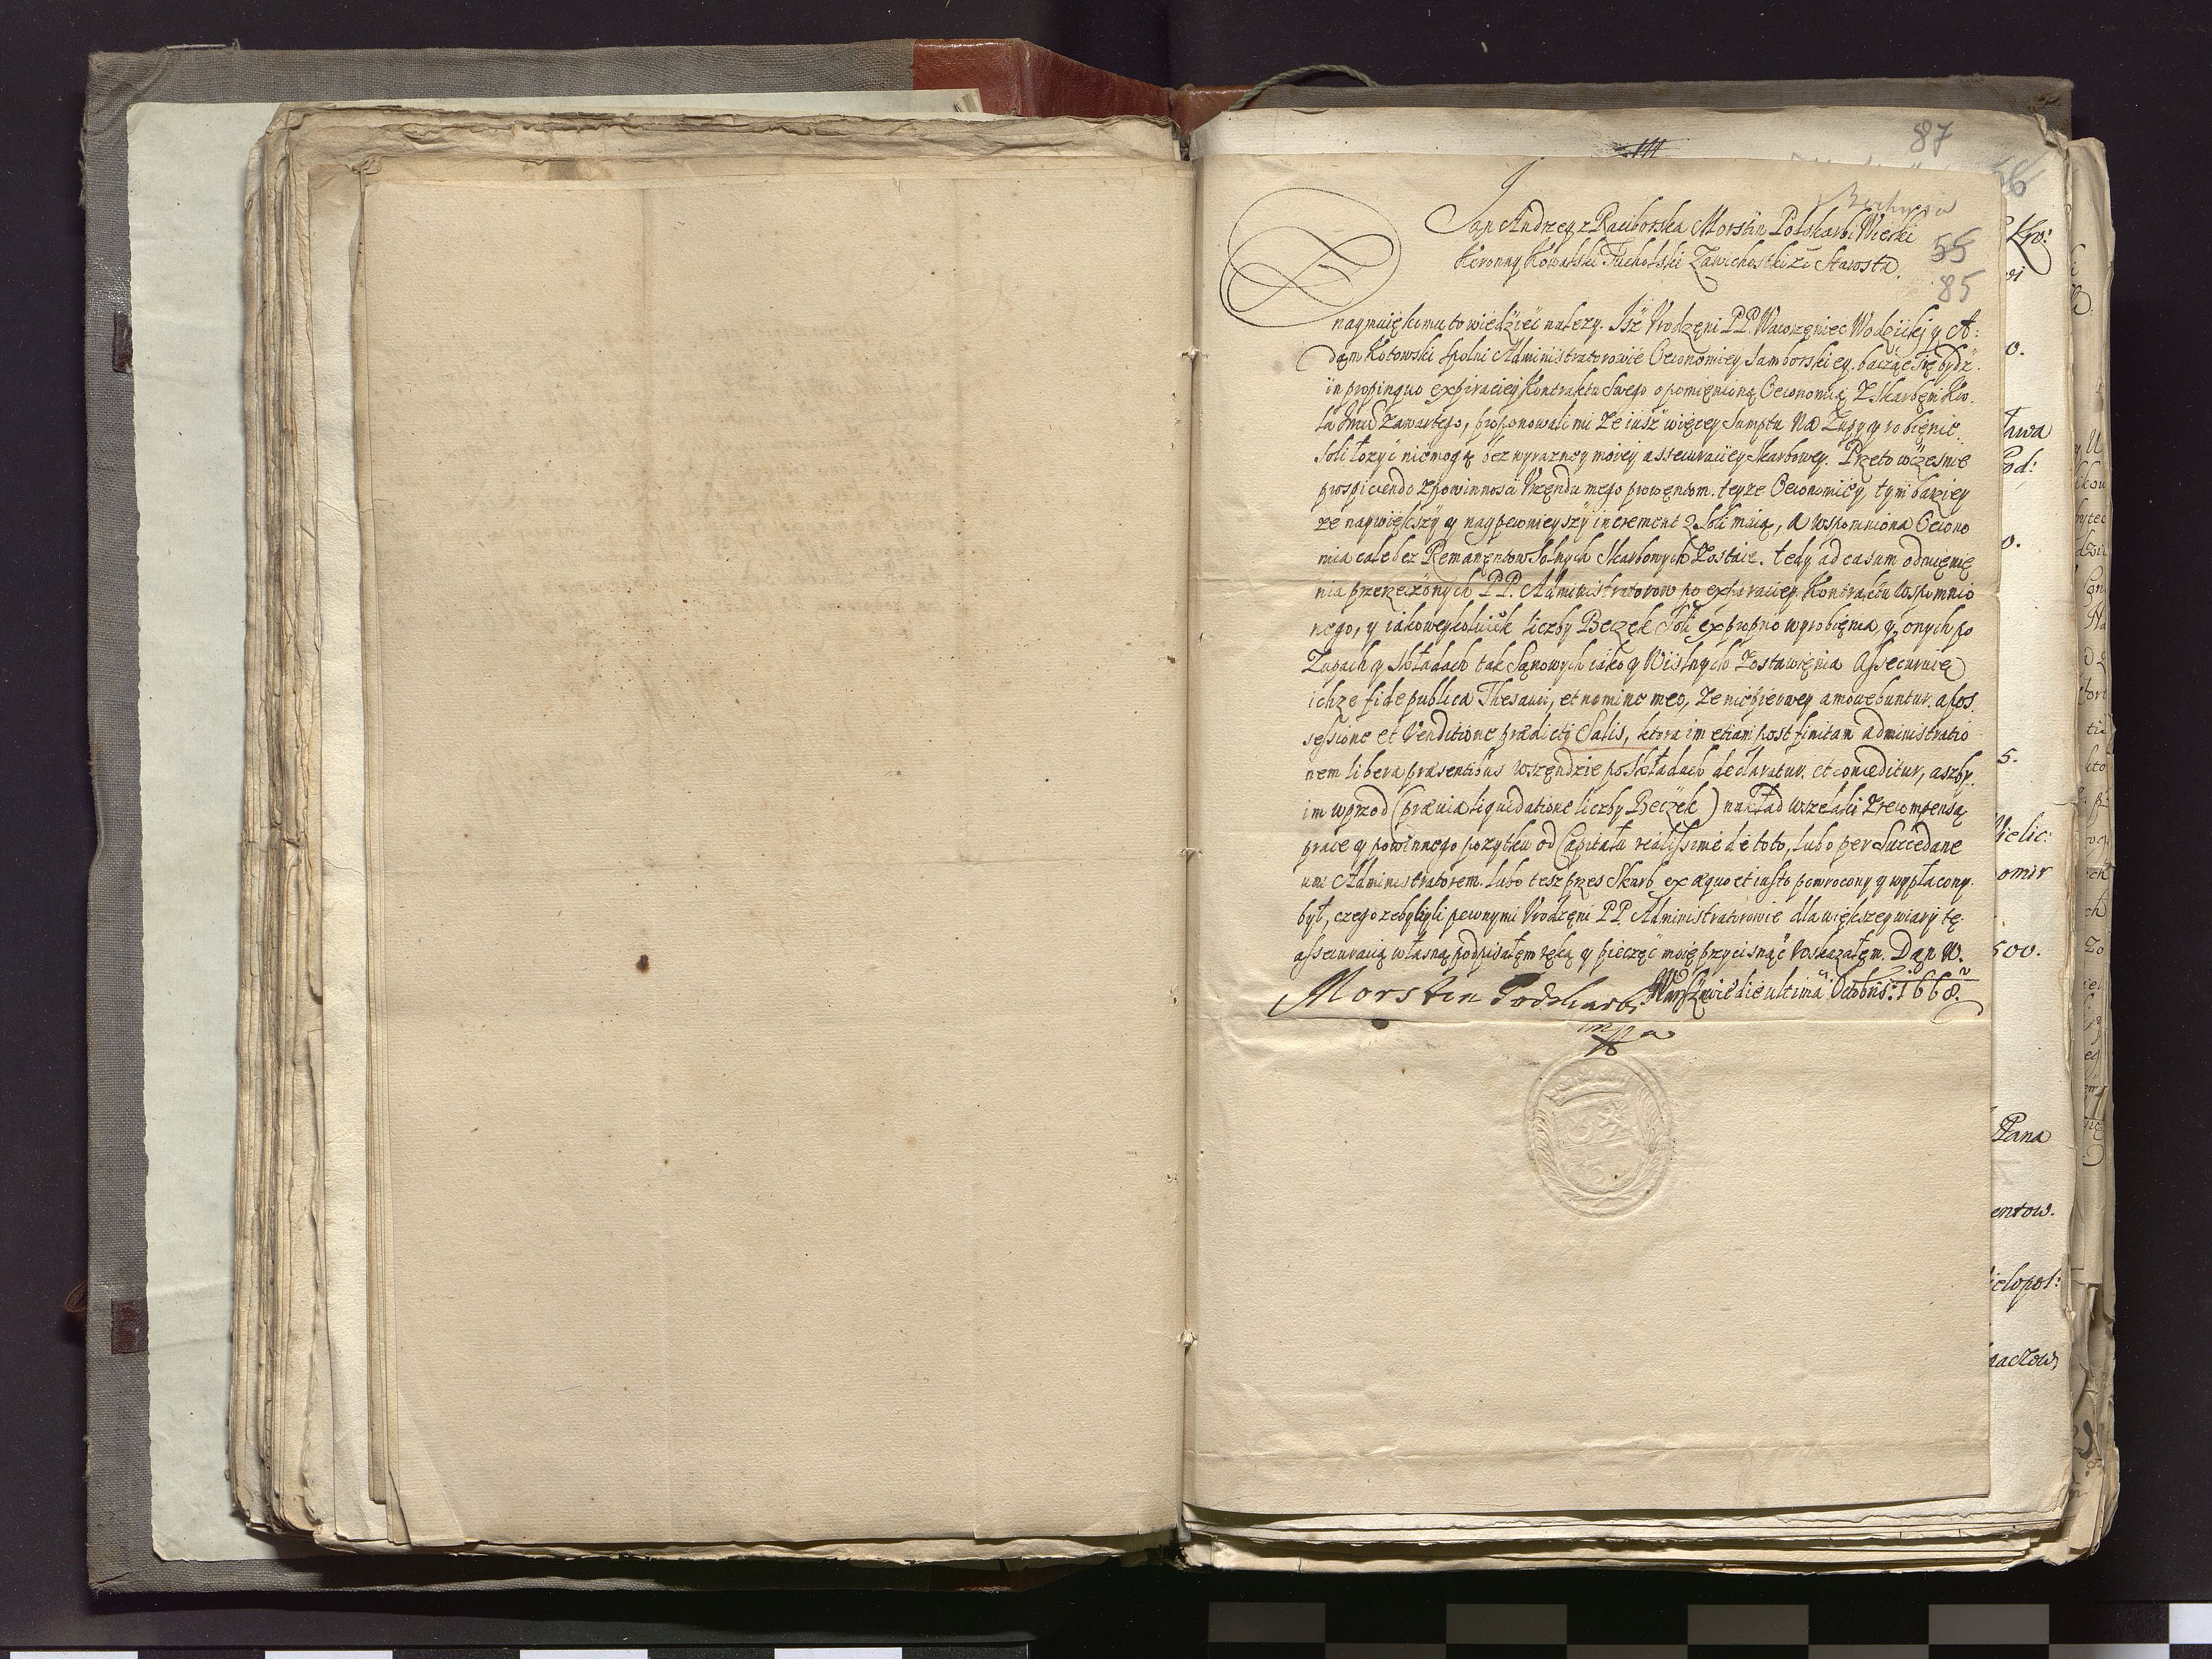 87
56
Bochnia
Jan Andrzey z Raciborska Morstin Podskarbi Wielki
55
Koronny Kowalski Tucholski Zawichostski ec Starosta.
85
naymuię komu to wiedźieć nalezy. Isz Vrodzęni PP. Wawrzęniec Wodzicki y A:
dam Kotowski spolni Administratorowie Oeconomiey Samborskiey. bacząc się bydz
in propinquo expiraciey Kontraktu swego o pomięnioną Oeconomią Z Skarbęm Kro.
la Jmci zawartego, proponowali mi Ze iusz więcey Sumptu Na Zupy y robięnie
Soli łozyć niemogą bez wyrazney moiey assecuraciey Skarbowey. Przeto wczesnie
prospiciendo z powinnosci Vrzędu mego prowentom teyze Oeconomiey, tym barziey
ze naywiększy y naypewnieyszy increment z Soli maią, A wspomniona Oecono
mia cale bez Remanentow Solnych Skarbowych Zostaie. tedy ad casum odmięnię
nia przerzeczonych PP. Administratorow po expiraciey Kontraktu wspomnio
nego, y iakoweykolwiek liczby Beczek Soli ex proprio wyrobięnia, y onych po
Zupach y Składach tak Sanowych iako y Wislnych Zostawięnia Assecuruię
ichze fide publica Thesauri, et nomine meo, Ze niepierwey amovebuntur a pos
sessione et Venditione prædicti Salis, ktora im etiam post finitam administratio
nem libera præsentibus wszęndzie po Składach declaratur et conceditur, aszby
im wprzod (prævia liquidatione liczby Beczek) nakład wszelaki z recompensą
prace y powinnego pozytku od Capitału realissime de toto, lubo per Succedane
um Administratorem. lubo tesz przes Skarb ex æquo et iusto powrocony y wypłacony
był, czego zeby byli pewnymi Vrodzęni PP. Administratorowie dla większey wiary tę
assecuracią własną podpisałem ręką y pieczęć moię przycisnąć roskazałem. Dan w.
Warszawie die ultima Octobris: 1668.
Morstin Podskarbi
mpa
Kro:
o.
ława
Pod:
o.
5.
Wielic:
omir
500.
Pana
entow.
ielopol: